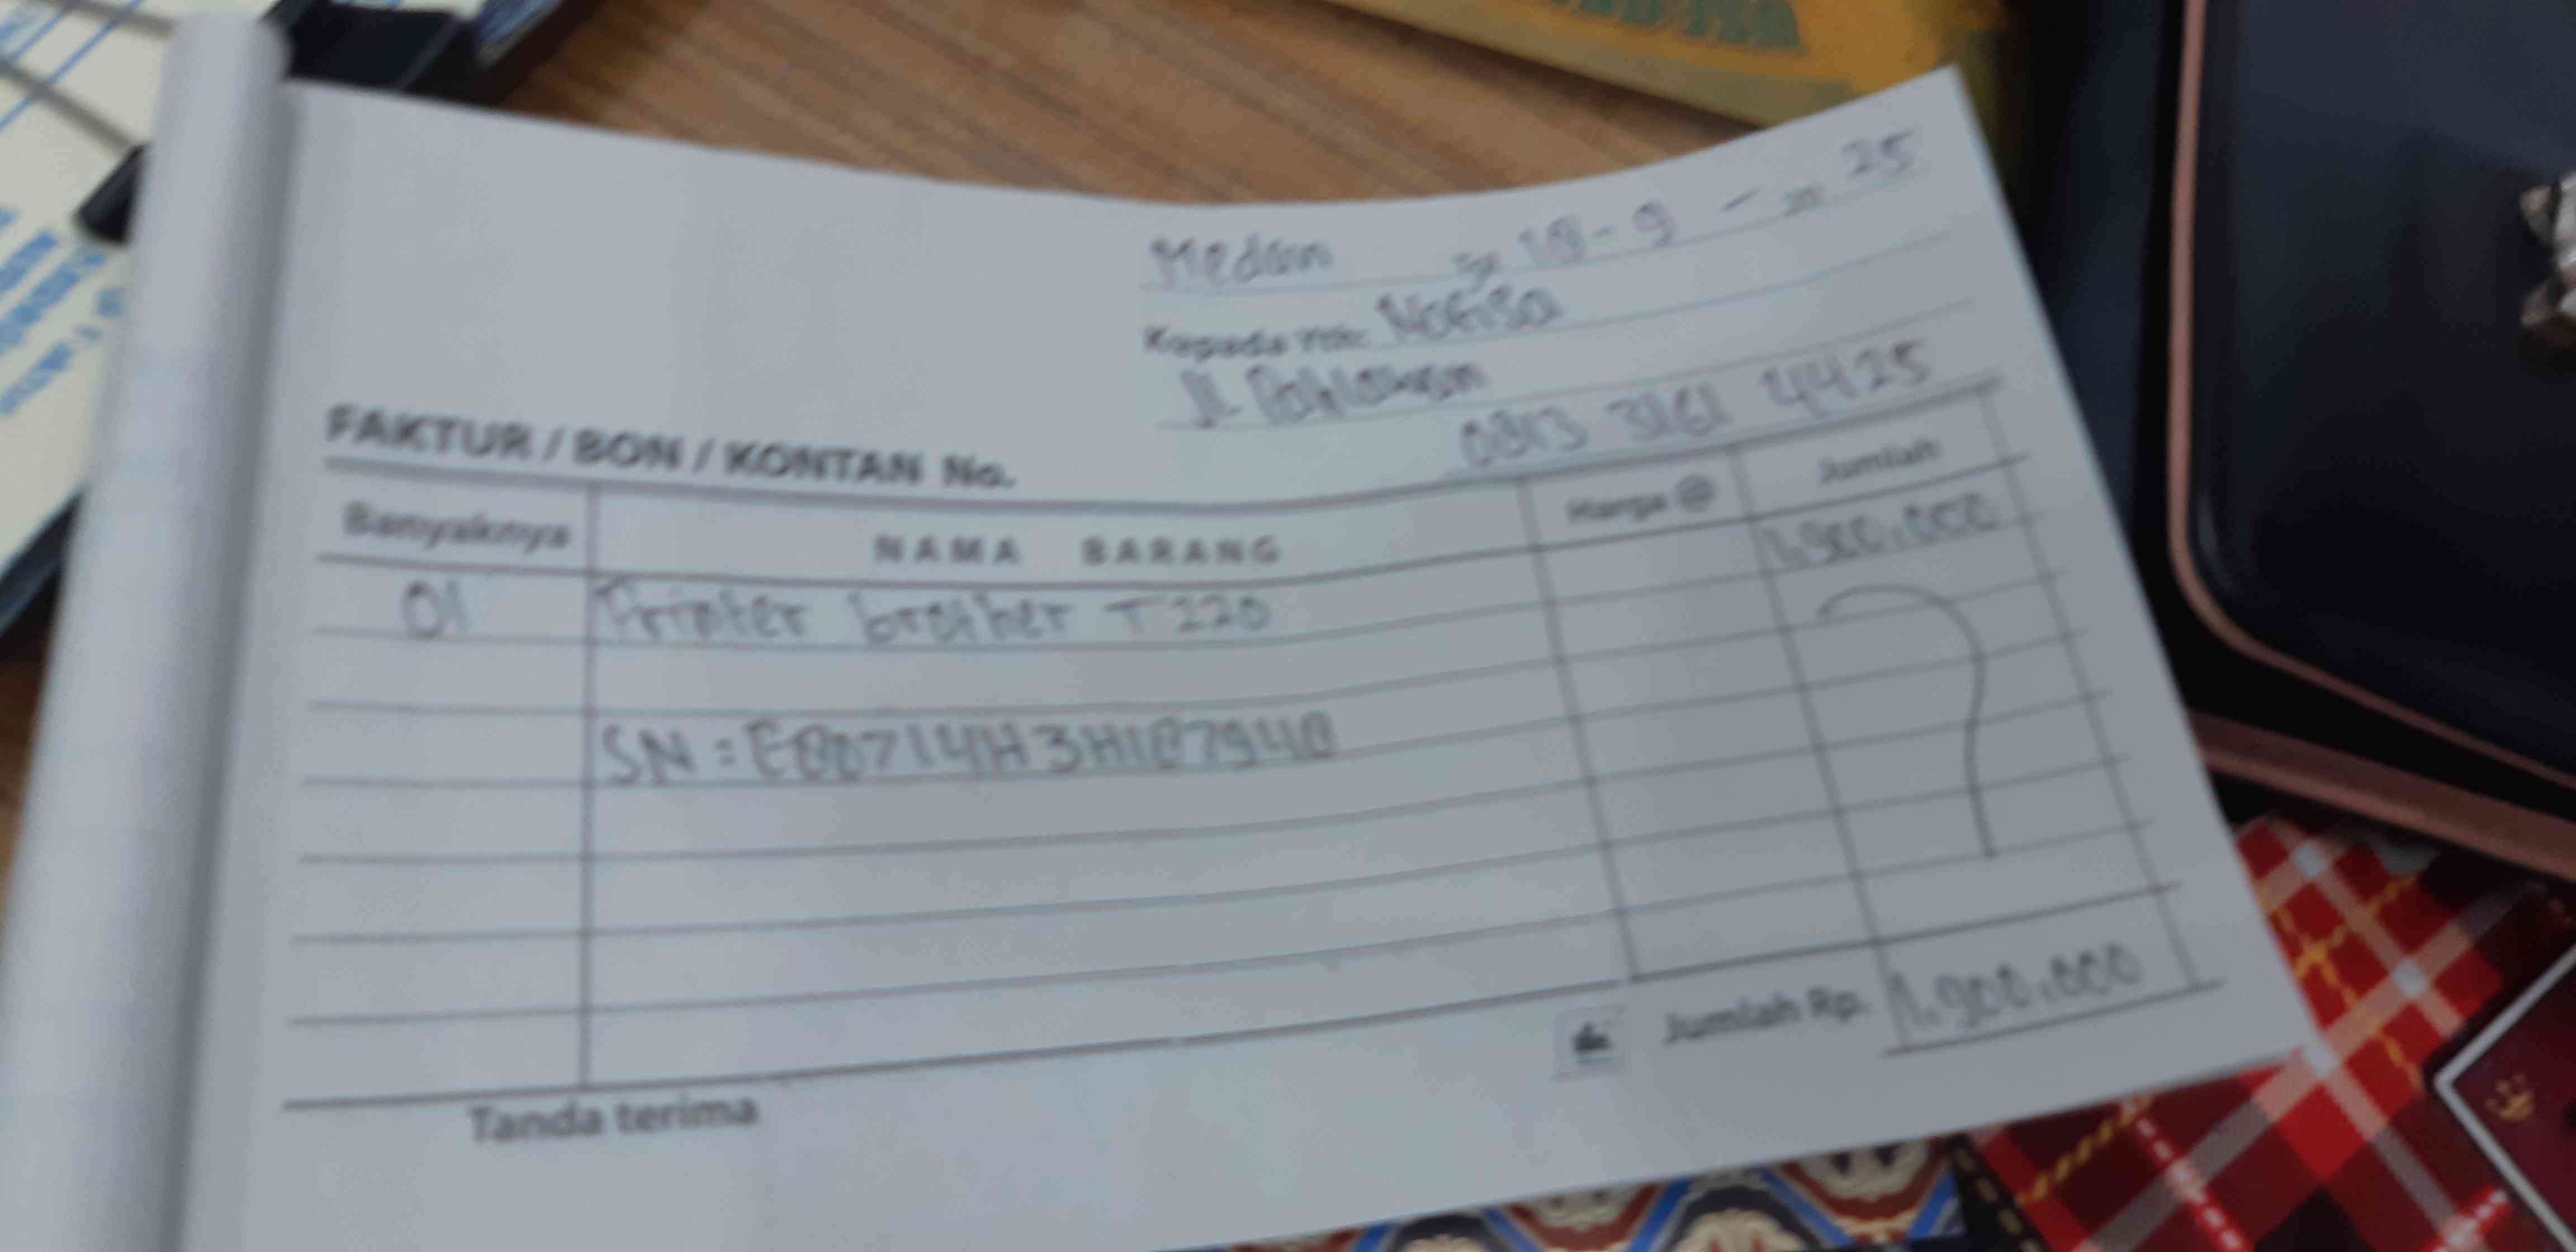 Medan Tgl 18 - 9 - 20 25
Kepada Yth: Nafisa
Jl. Pahlawan
0813 3161 4425
FAKTUR / BON / KONTAN No.
Banyaknya NAMA BARANG Harga @ Jumlah
01 Printer brother T220 1.900.000
SN = E80714H3H1879
Jumlah Rp. 1.900.000
Tanda terima